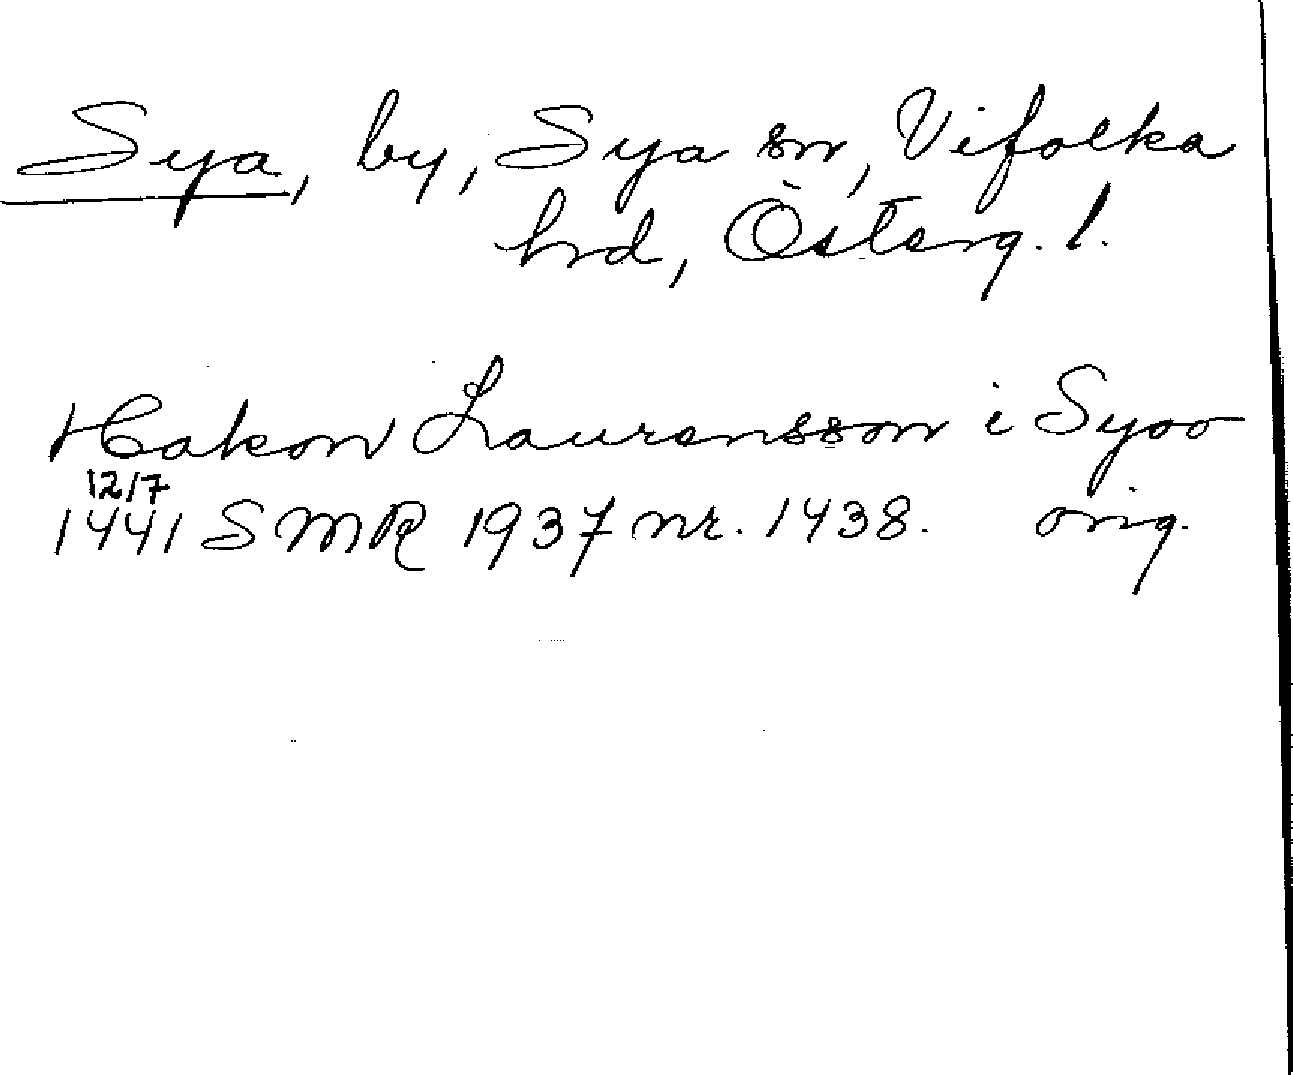 Sya, by, Sya sn, Vifolka
hrd, Österg. l.
Hakon Laurensson i Syoo
12/7
1441 SMR 1937 nr. 1438. orig.